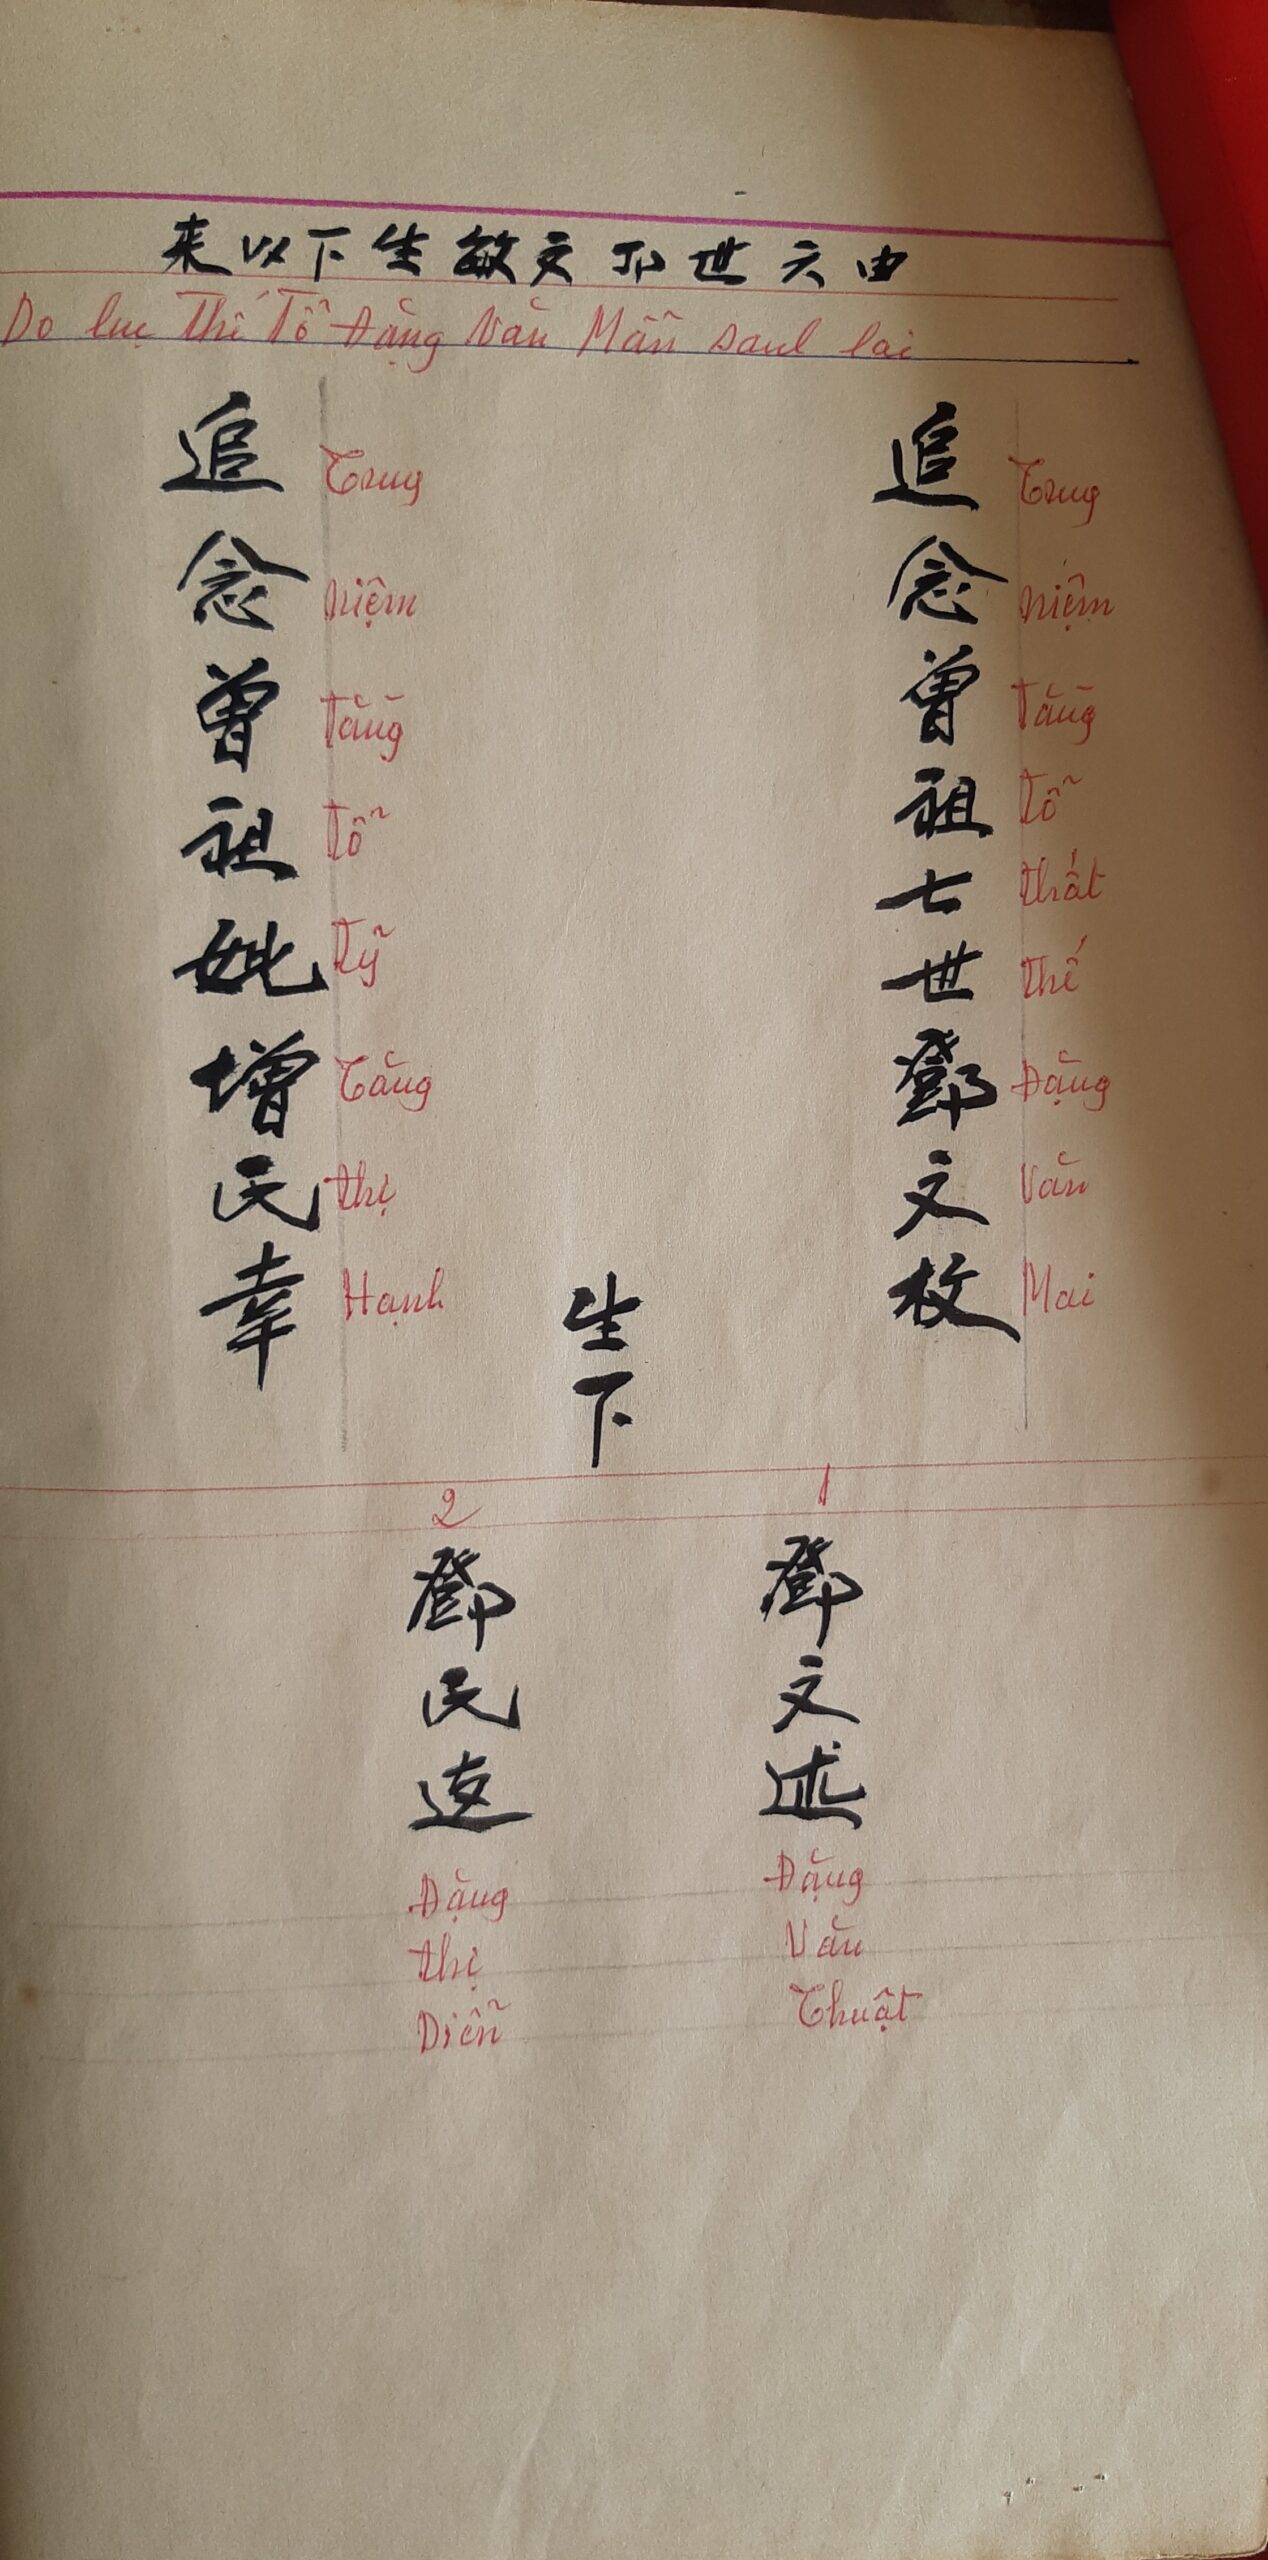 由六世祖文敏生下以来
Do lục Thế Tổ Đặng Văn Mẫn sanh lai
追念曾祖七世鄧文枚
Truy
niệm
Tằng
tổ
thất
thế
Đặng
Văn
Mai
追念曾祖妣增氏幸
Truy
niệm
tằng
tổ
tỷ
Tăng
thị
Hạnh
生下
1
鄧文述
Đặng
Văn
Thuật
2
鄧氏
Đặng
thị
Diễn